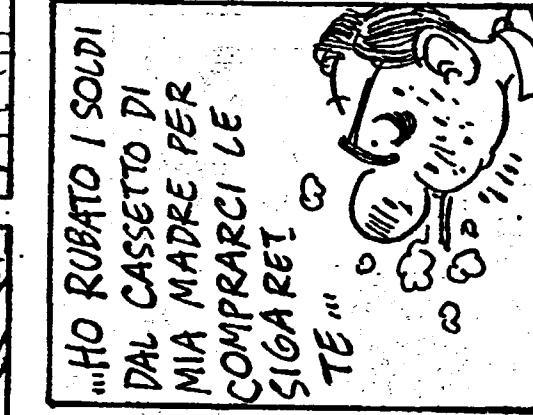 ...HO RUBATO I SOLDI
DAL CASSETTO DI
MIA MADRE PER
COMPRARCI LE
SIGARET
TE...